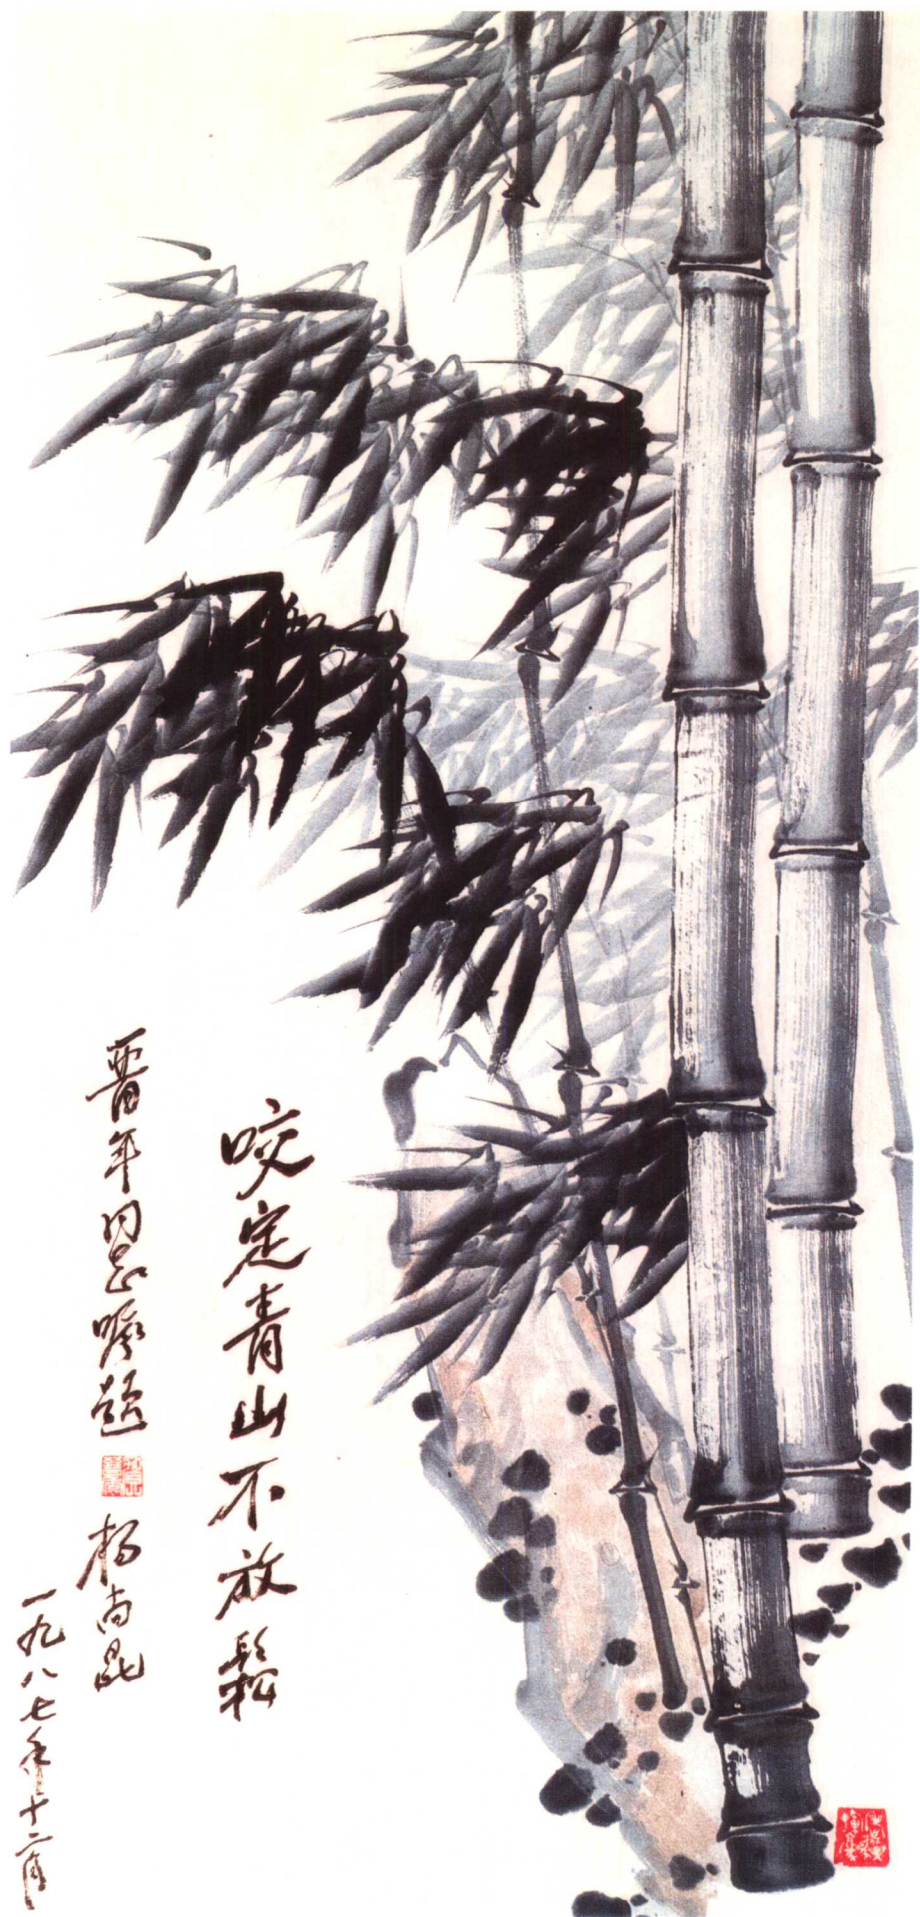 咬定青山不放鬆
晋年同志嘱題
楊尚昆
一九八七年十二月